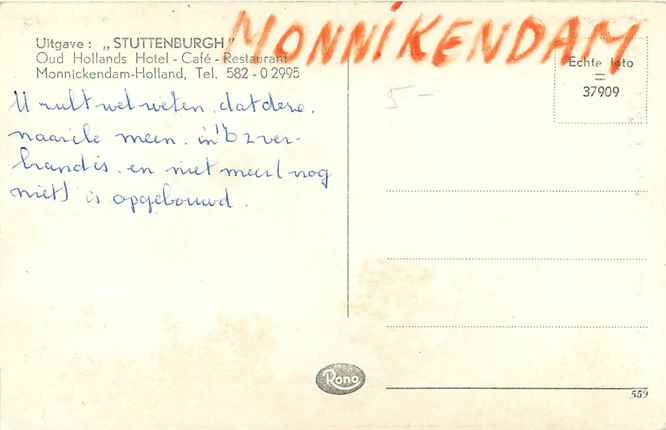 MONNIKENDAM
Uitgave: „STUTTENBURGH"
Oud Hollands Hotel - Café - Restaurant
Monnickendam-Holland, Tel. 582 - 0 2995
Echte foto
=
37909
5-
U zult wel weten, dat deze,
naar ik meen, in
brand is en niet meer (nog
niet) is opgebouwd.
Rono
559